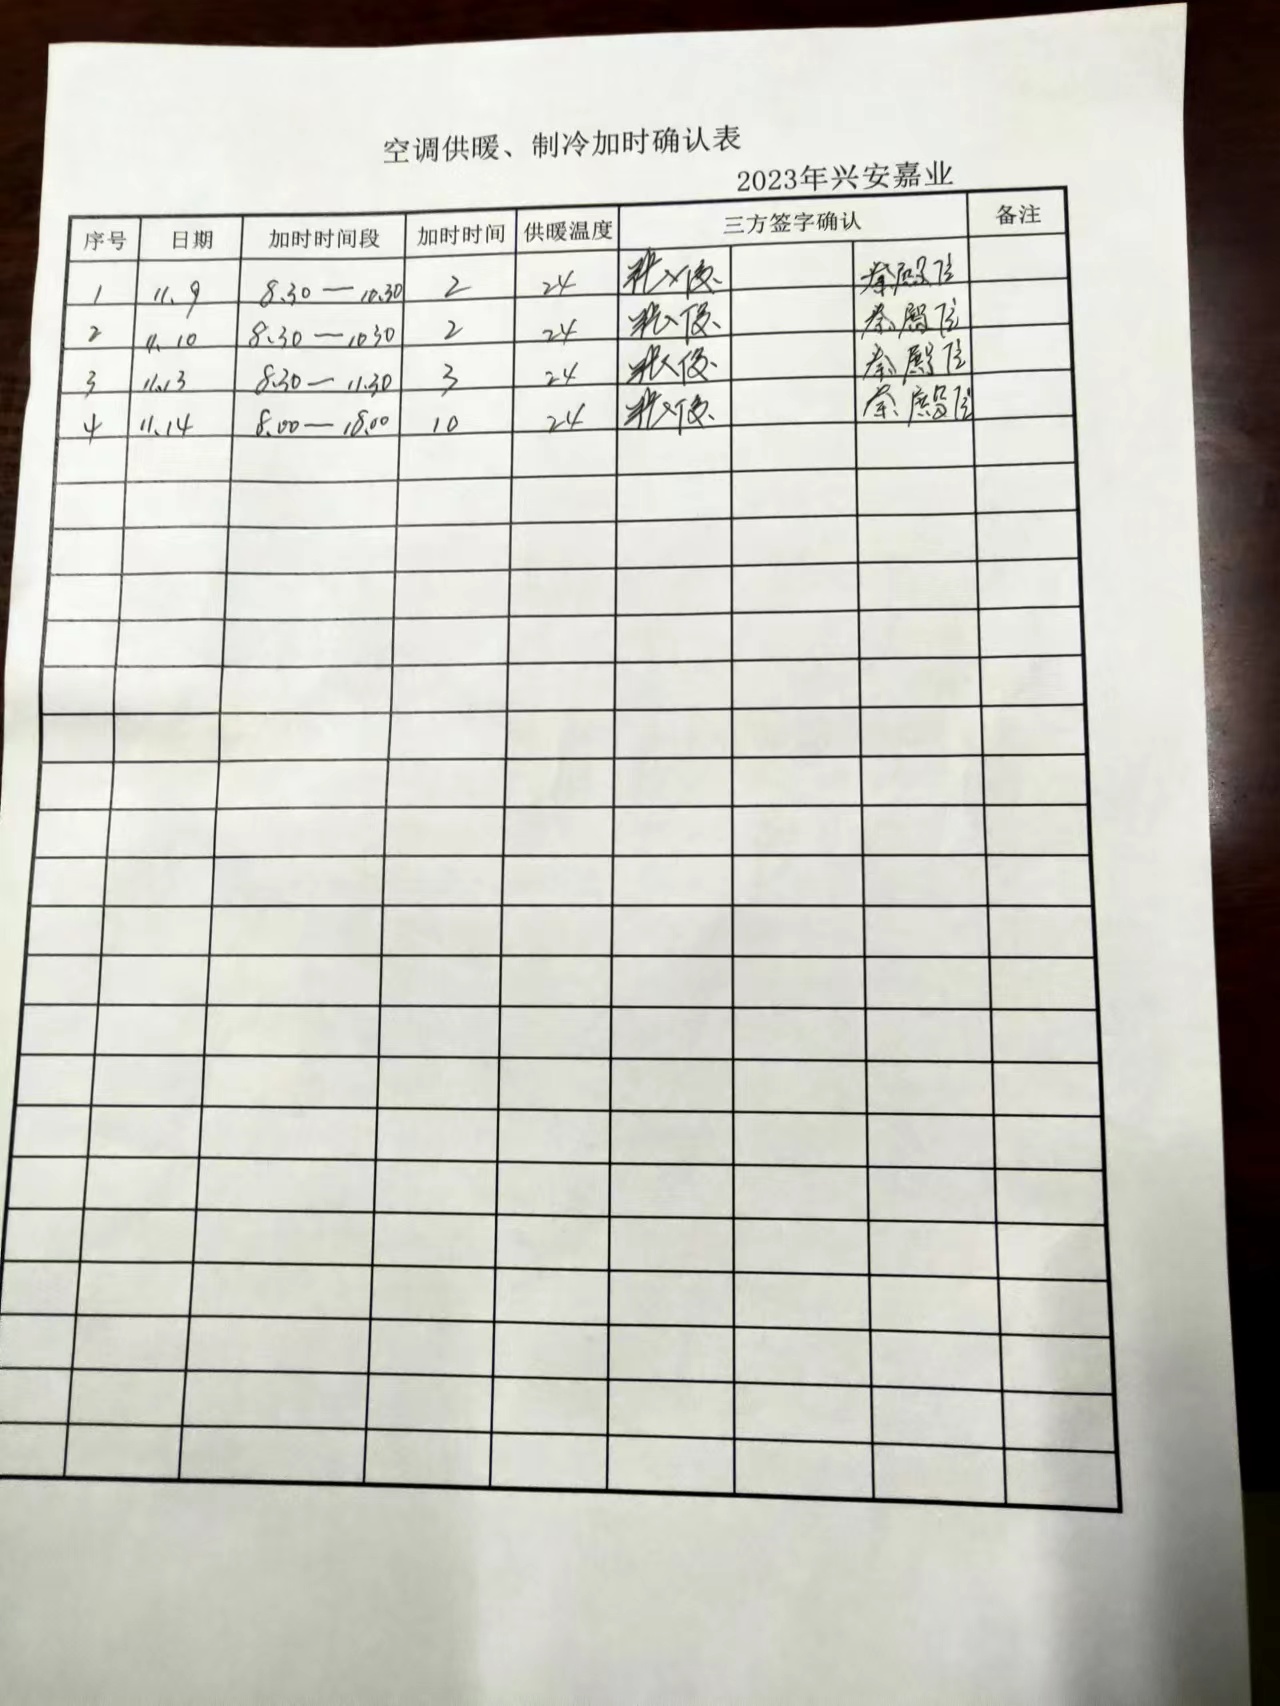 空调供暖、制冷加时确认表
2023年兴安嘉业
序号 日期 加时时间段 加时时间 供暖温度 三方签字确认 备注
1 11.9 8.30—10.30 2 24
2 11.10 8.30—10.30 2 24
3 11.13 8.30—11.30 3 24
4 11.14 8.00—18.00 10 24